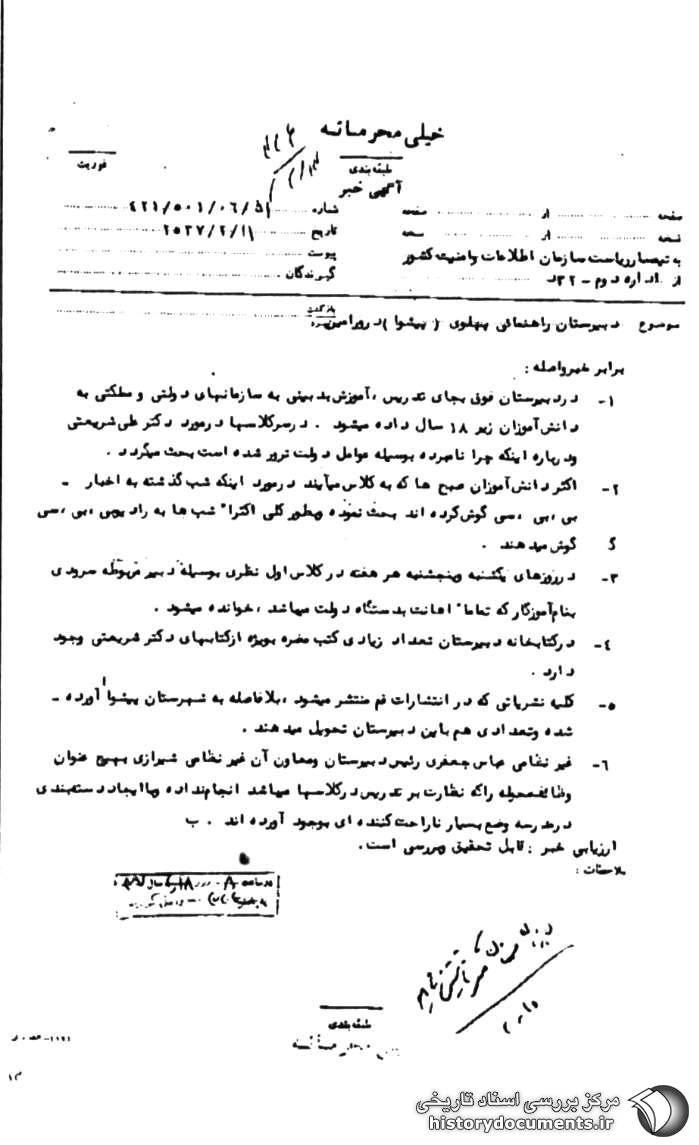 خیلی محرمانه
طبقه‌بندی
فوریت
آگهی خبر
صفحه از صفحه
شماره ٤٢١/٥٠١/٠٦/٥١
نسخه از نسخه
تاریخ ٢٥٣٧/٢/١١
به تیمسار ریاست سازمان اطلاعات و امنیت کشور
پیوست
از اداره دوم - ٣٢
گیرندگان
موضوع دبیرستان راهنمائی پهلوی (پیشوا) در ورامین
بازگشت
برابر خبر واصله :
١- در دبیرستان فوق بجای تدریس ، آموزش بدبینی به سازمانهای دولتی و مملکتی به
دانش‌آموزان زیر ١٨ سال داده میشود . در سر کلاسها در مورد دکتر علی شریعتی
و درباره اینکه چرا نامبرده بوسیله عوامل دولت ترور شده است بحث میگردد .
٢- اکثر دانش‌آموزان صبح ها که به کلاس میآیند در مورد اینکه شب گذشته به اخبار -
بی ، بی ، سی گوش کرده اند بحث نموده و بطور کلی اکثراً شب ها به رادیو بی ، بی ، سی
گوش میدهند .
٣- در روزهای یکشنبه و پنجشنبه هر هفته در کلاس اول نظری بوسیله دبیر مربوطه سرودی
بنام آموزگار که تماماً اهانت بدستگاه دولت میباشد ، خوانده میشود .
٤- در کتابخانه دبیرستان تعداد زیادی کتب مضره بویژه از کتابهای دکتر شریعتی وجود
دارد .
٥- کلیه نشریاتی که در انتشارات قم منتشر میشود ، بلافاصله به شهرستان پیشوا آورده -
شده و تعدادی هم باین دبیرستان تحویل میدهند .
٦- غیر نظامی عباس جعفری رئیس دبیرستان و معاون آن غیر نظامی شیرازی بهیچ عنوان
وظائف محوله را که نظارت بر تدریس در کلاسها میباشد انجام نداده و با ایجاد دسته‌بندی
در مدرسه وضع بسیار ناراحت کننده ای بوجود آورده اند . ب
ارزیابی خبر : قابل تحقیق و بررسی است .
ملاحظات :
طبقه‌بندی
مرکز بررسی اسناد تاریخی
historydocuments.ir